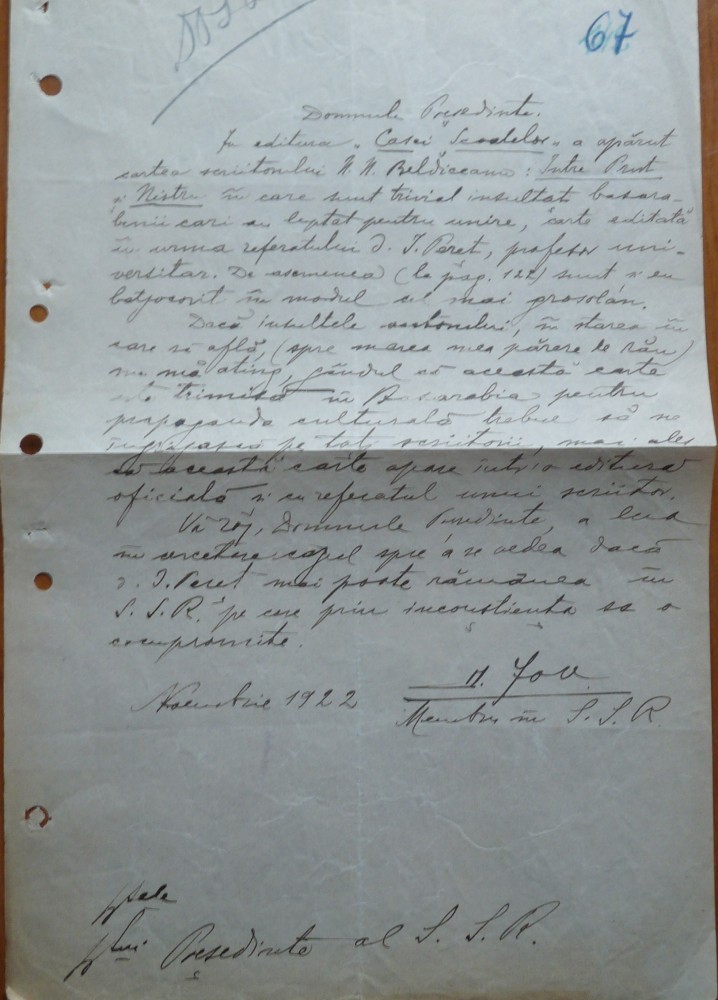 67
Domnule Președinte.
În editura „Casei Școalelor" a apărut
cartea scriitorului N. N. Beldiceanu: Între Prut
și Nistru în care sunt trivial insultați basara-
benii cari au luptat pentru unire, carte editată
în urma referatului d. I. Peretz, profesor uni-
versitar. De asemenea (la pag. 122) sunt și eu
batjocorit în modul cel mai grosolan.
Dacă insultele autorului, în starea în
care se află, (spre marea mea părere de rău)
nu mă ating, gândul că această carte
este trimisă în Basarabia pentru
propaganda culturală trebue să ne
îngrijească pe toți scriitorii, mai ales
că această carte apare într'o editură
oficială și cu referatul unui scriitor.
Vă rog, Domnule Președinte, a lua
în cercetare cazul spre a se vedea dacă
d. I. Peret mai poate rămânea în
S. S. R. pe care prin inconștiența sa o
compromite.
Noembrie 1922
D. Iov
Membru în S. S. R.
Președinte al S. S. R.